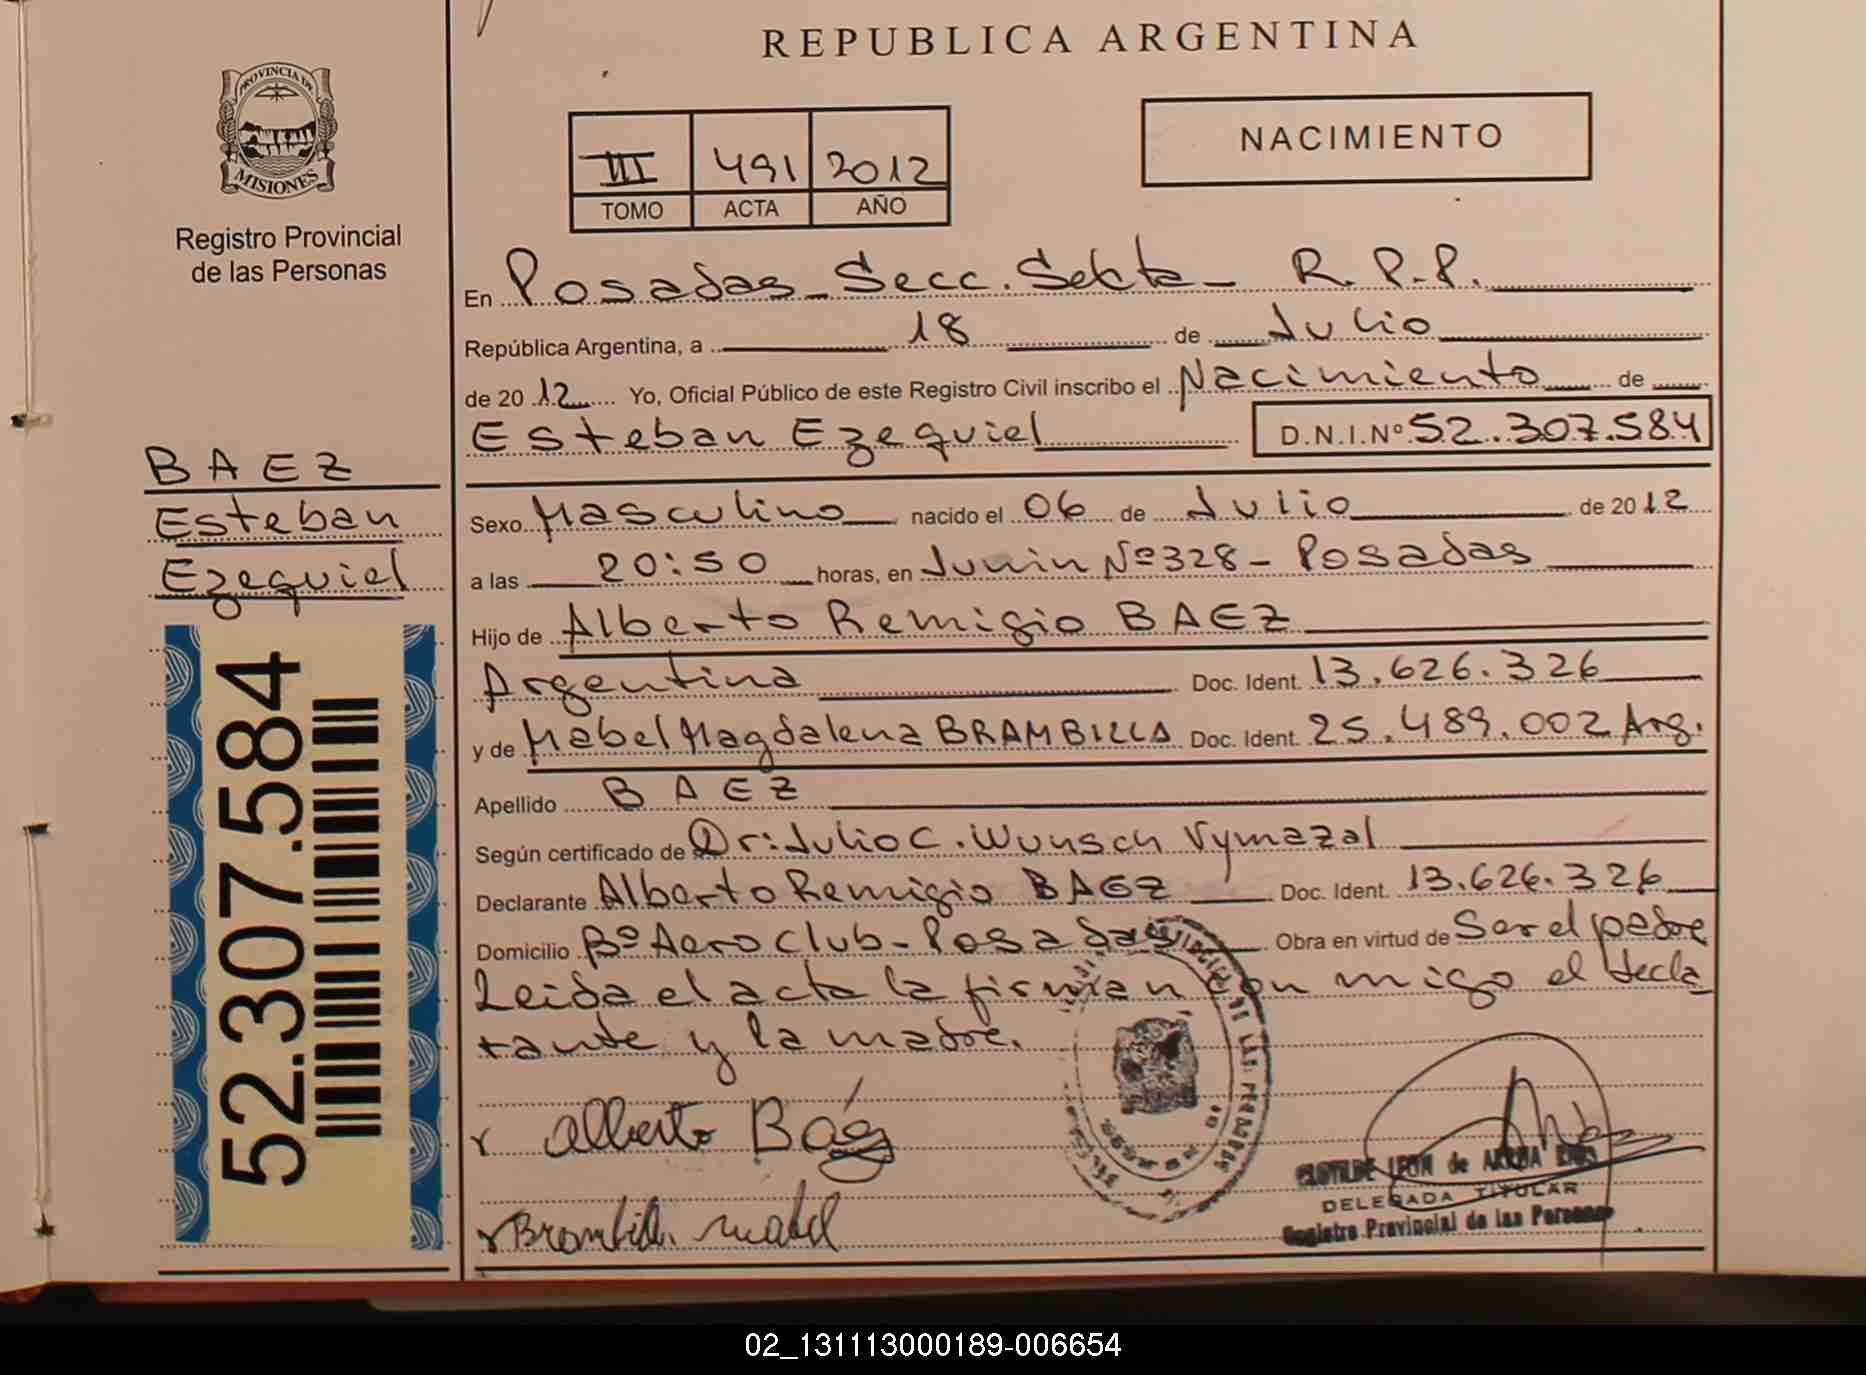 REPUBLICA ARGENTINA
PROVINCIA DE
MISIONES
Registro Provincial
de las Personas
III 491 2012
TOMO ACTA AÑO
NACIMIENTO
En Posadas - Secc. Sexta - R.P.P.
República Argentina, a 18 de Julio
de 2012 Yo, Oficial Público de este Registro Civil inscribo el Nacimiento de
Esteban Ezequiel D.N.I.Nº 52.307.584
BAEZ
Esteban
Ezequiel
52.307.584
Sexo Masculino nacido el 06 de Julio de 2012
a las 20:50 horas, en Junin Nº 328 - Posadas
Hijo de Alberto Remigio BAEZ
Argentina Doc. Ident. 13.626.326
y de Mabel Magdalena BRAMBILLA Doc. Ident. 25.489.002 Arg.
Apellido BAEZ
Según certificado de Dr: Julio C. Wunsch Vymazal
Declarante Alberto Remigio BAEZ Doc. Ident. 13.626.326
Domicilio Bº Aeroclub - Posadas Obra en virtud de Ser el padre
Leida el acta la firman con migo el decla
rante y la madre.
Alberto Báez
Brambilla Mabel
CLOTILDE LEON de
DELEGADA TITULAR
Registro Provincial de las Personas
02_131113000189-006654